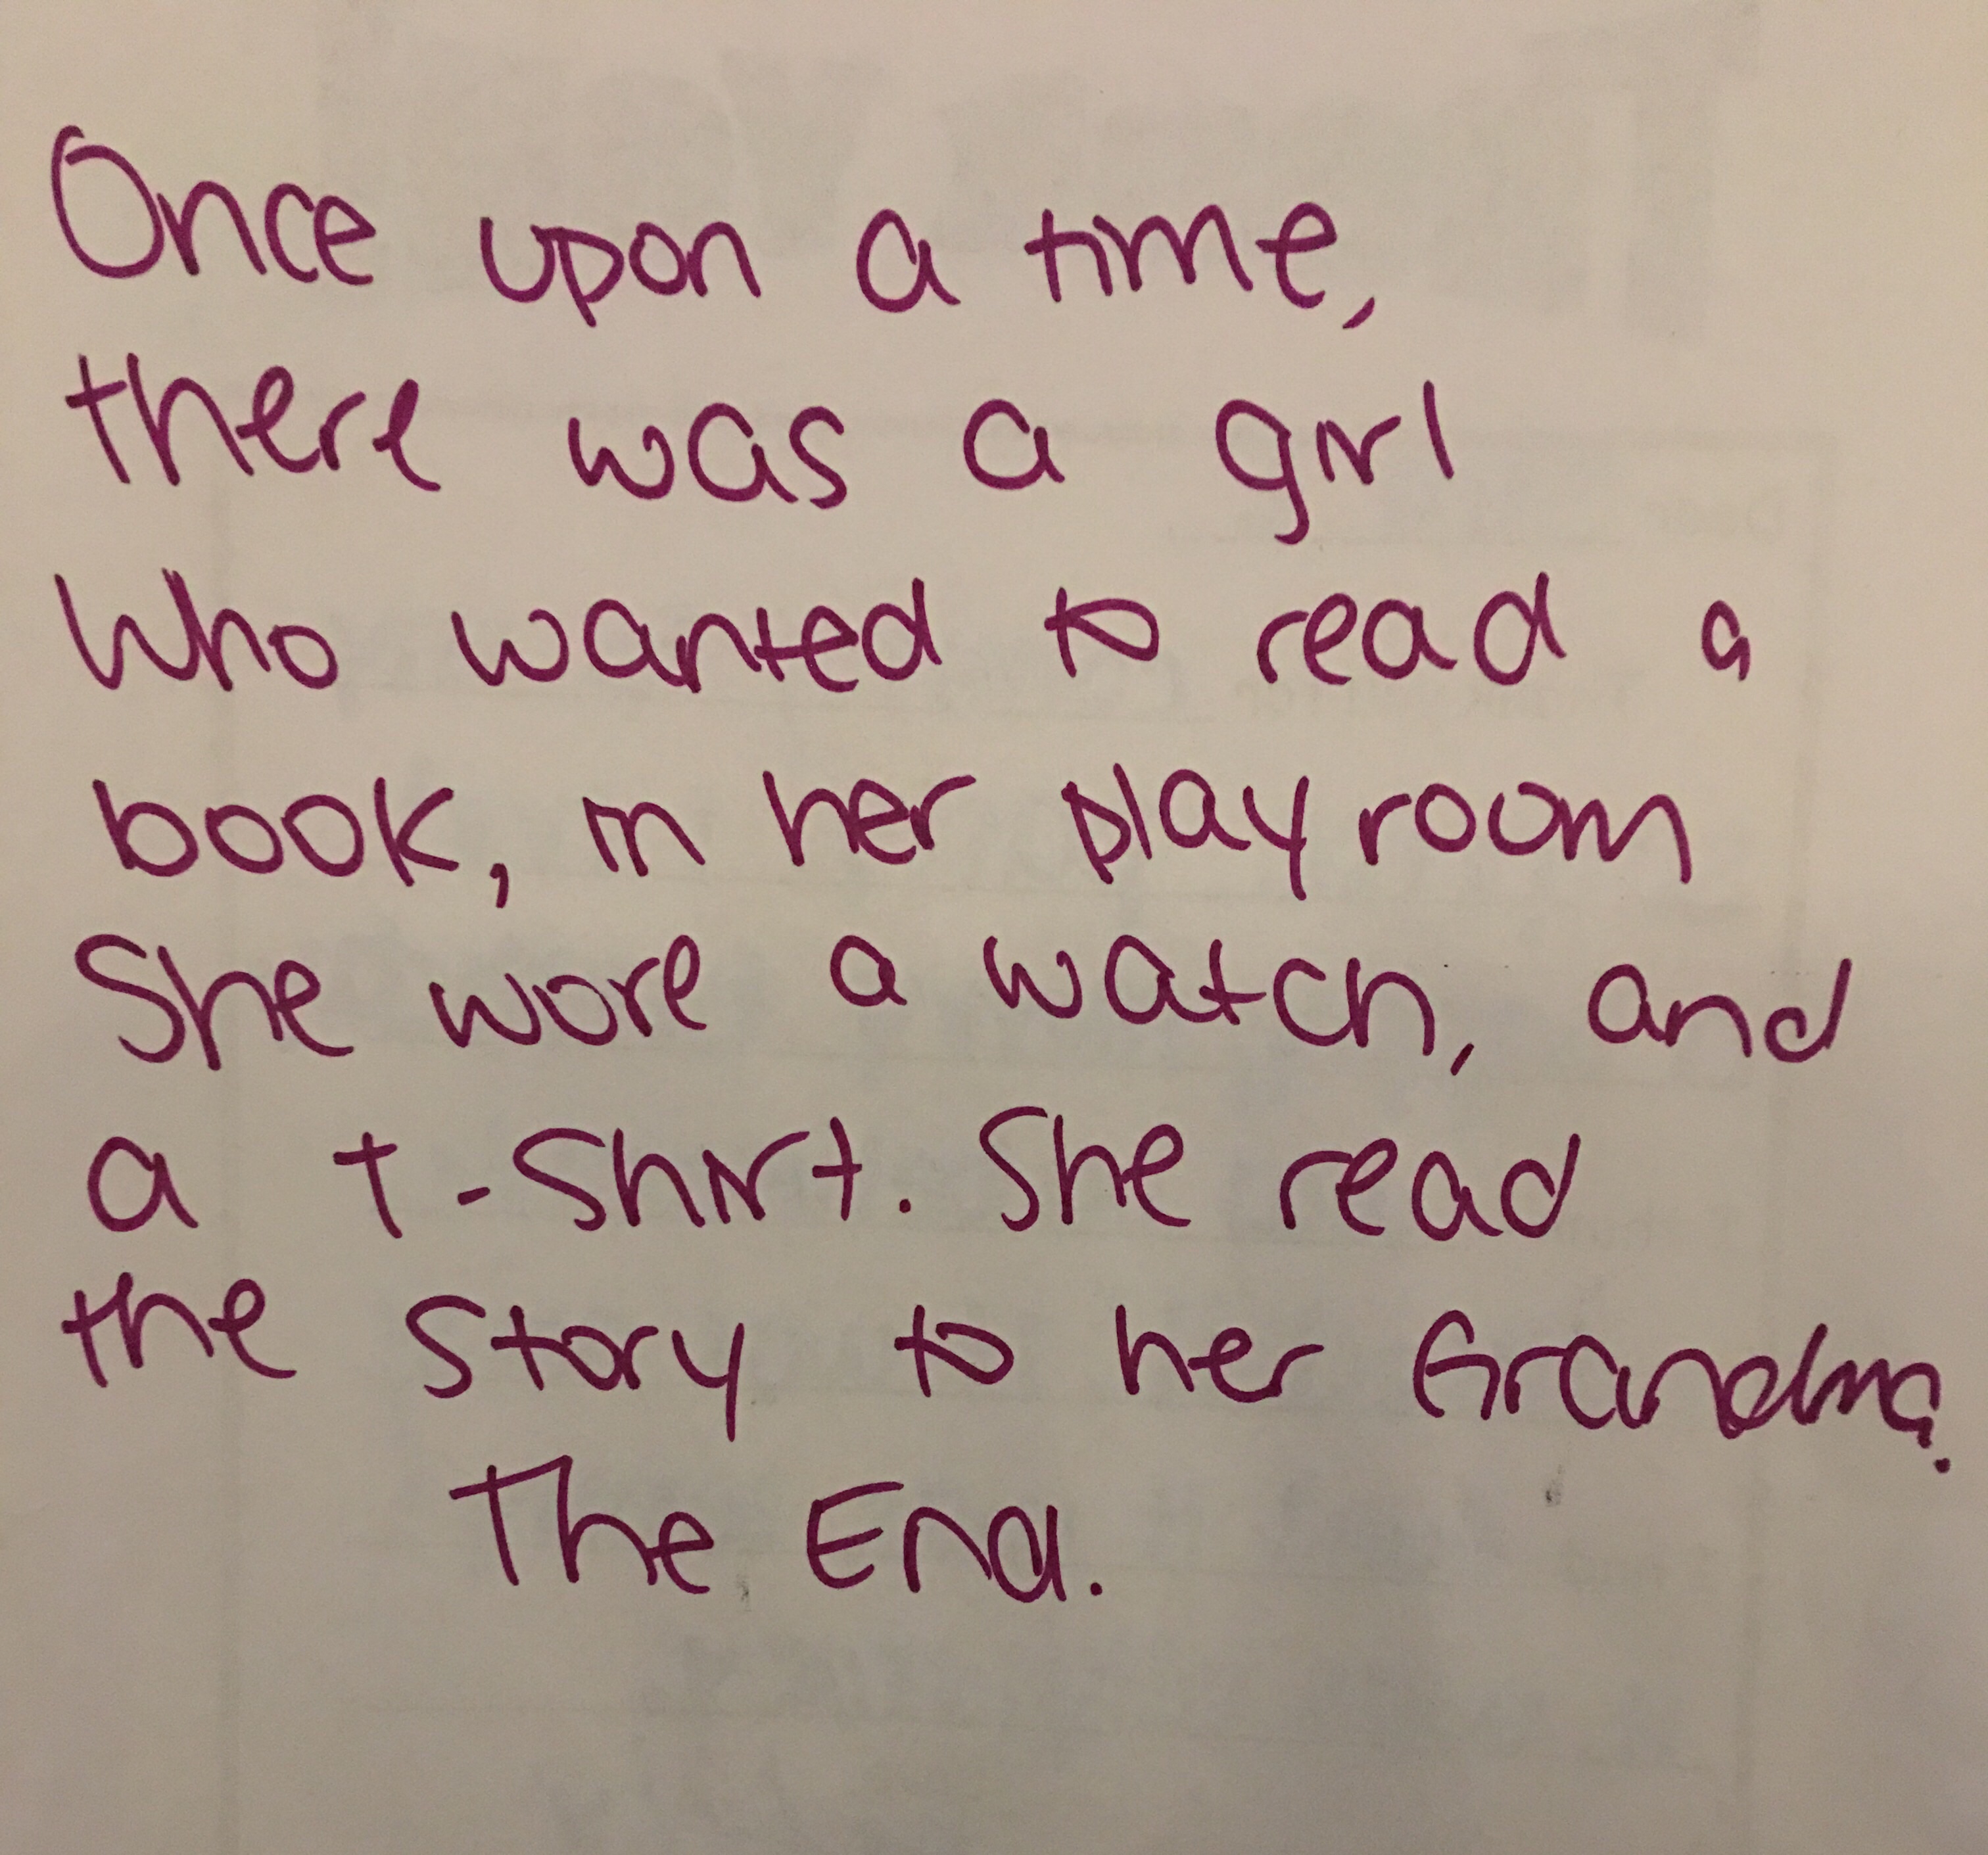 Once upon a time,
there was a girl
Who wanted to read a
book, in her play room
She wore a watch, and
a t-shirt. She read
the story to her Grandma.
The End.